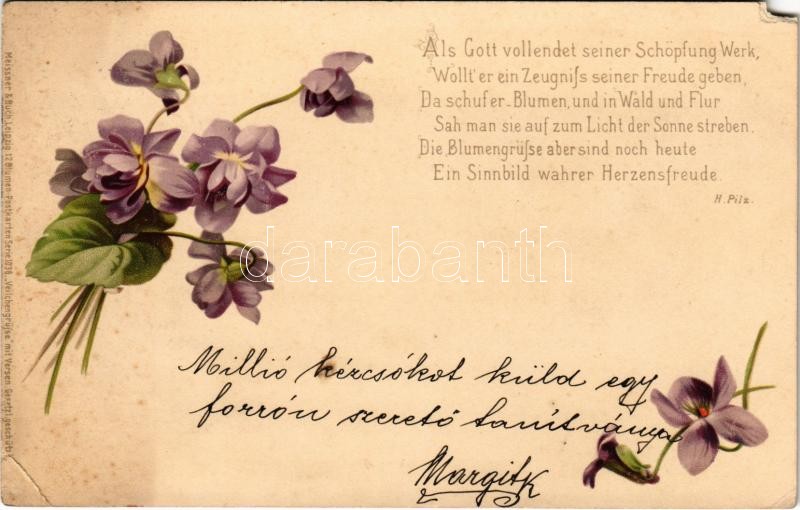 Als Gott vollendet seiner Schöpfung Werk,
Wollt' er ein Zeugniſs seiner Freude geben,
Da schuf er Blumen, und in Wald und Flur
Sah man sie auf zum Licht der Sonne streben.
Die Blumengrüſse aber sind noch heute
Ein Sinnbild wahrer Herzensfreude.
H. Pilz.
Meissner & Buch, Leipzig. 12 Blumen-Postkarten Serie 1036 „Veilchengrüſse" mit Versen. Gesetzl. geschützt
darabanth
Millió kézcsókot küld egy
forrón szerető tanítványa
Margitk